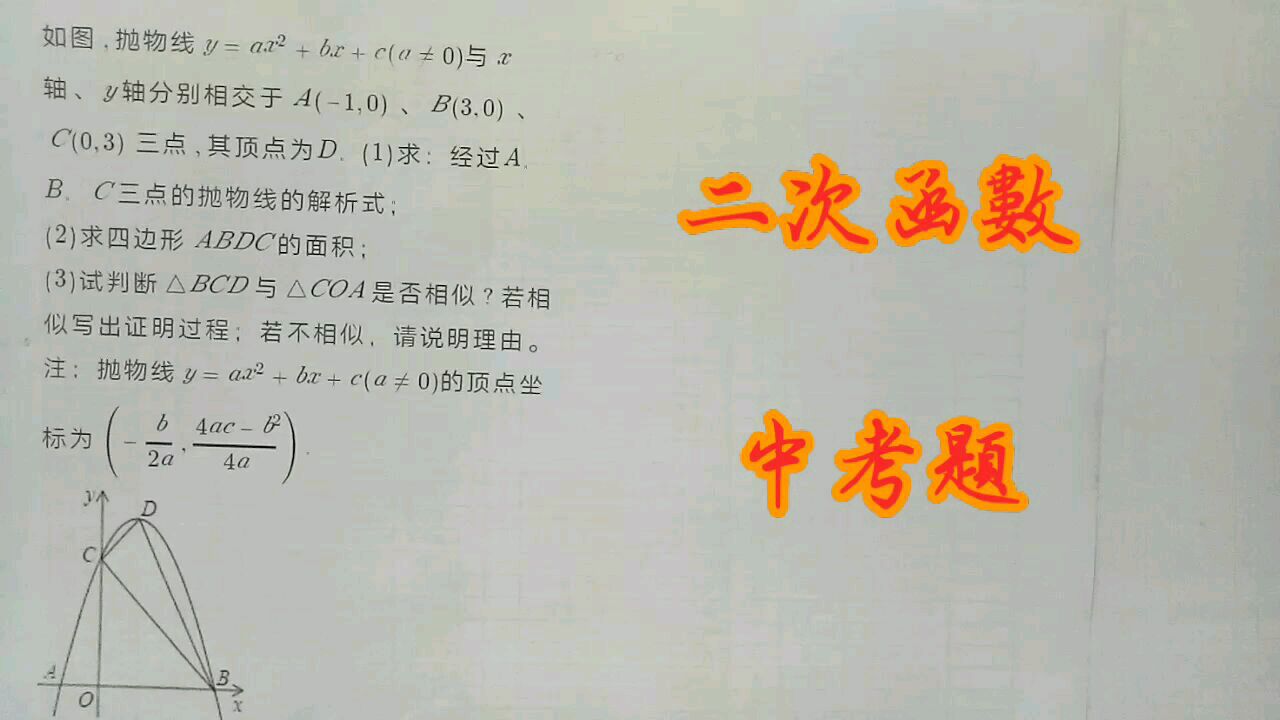 如图,抛物线 y = ax² + bx + c(a ≠ 0)与 x
轴、y轴分别相交于 A(−1,0) 、B(3,0) 、
C(0,3) 三点,其顶点为D. (1)求：经过A.
B. C三点的抛物线的解析式；
(2)求四边形 ABDC的面积；
(3)试判断 △BCD与 △COA是否相似？若相
似写出证明过程；若不相似，请说明理由。
注：抛物线 y = ax² + bx + c(a ≠ 0)的顶点坐
标为 (− b/2a, 4ac − b²/4a).
y
D
C
A
O
B
x
二次函數
中考题